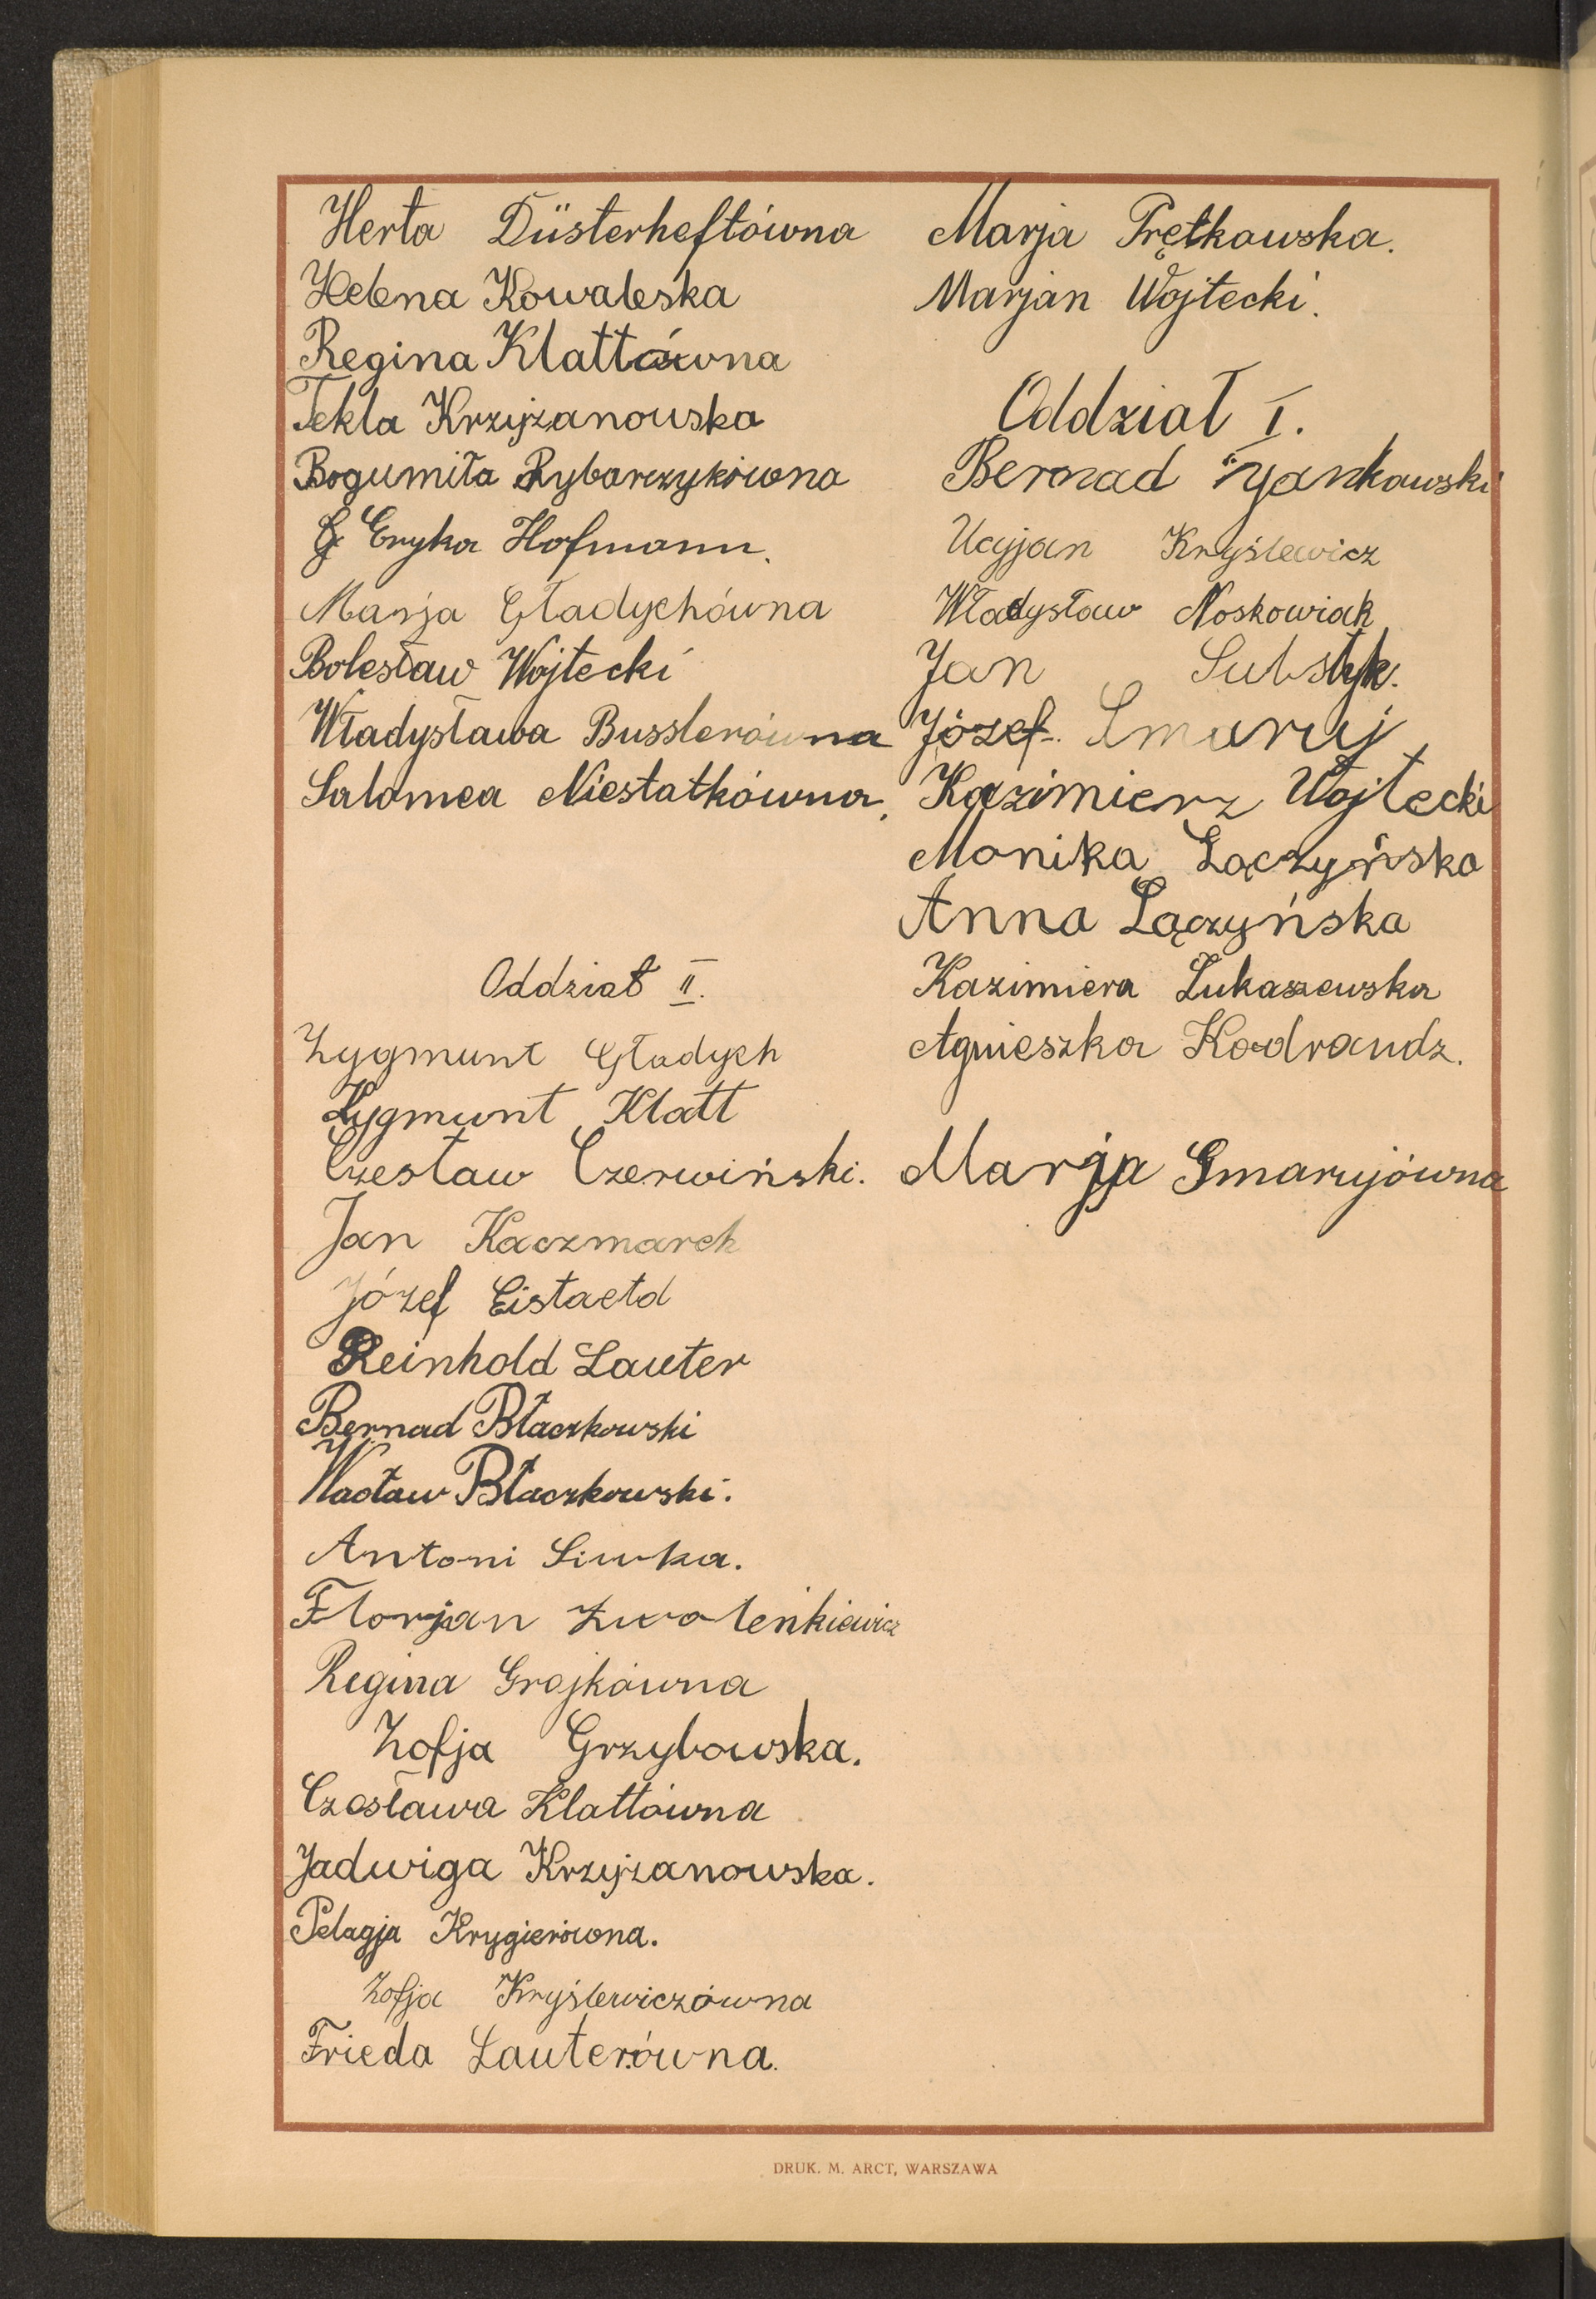 Herta Düsterheftówna
Helena Kowaleska
Regina Klattówna
Tekla Krzyżanowska
Bogumiła Rybarczykówna
G Eryka Hofmann.
Marja Gładychówna
Bolesław Wojtecki
Władysława Busslerówna
Salomea Niestatkówna.
Oddział II.
Zygmunt Gładych
Zygmunt Klatt
Czesław Czerwiński.
Jan Kaczmarek
Józef Eistaetd
Reinhold Lauter
Bernad Błaczkowski
Wacław Błaczkowski.
Antoni Siwka.
Florjan Zwoleńkiewicz
Regina Grojkówna
Zofja Grzybowska.
Czesława Klattówna
Jadwiga Krzyżanowska.
Pelagja Krygierówna.
Zofja Kryślewiczówna
Frieda Lauterówna.
Marja Prętkowska.
Marjan Wojtecki.
Oddział I.
Bernad Jankowski
Kryślewicz
Władysław Noskowiak
Jan Substyk.
Józef Smaruj
Kazimierz Wojtecki
Monika Łączyńska
Anna Łączyńska
Kazimiera Łukaszewska
Agnieszka Kodraudz.
Marja Smarujówna
DRUK. M. ARCT, WARSZAWA